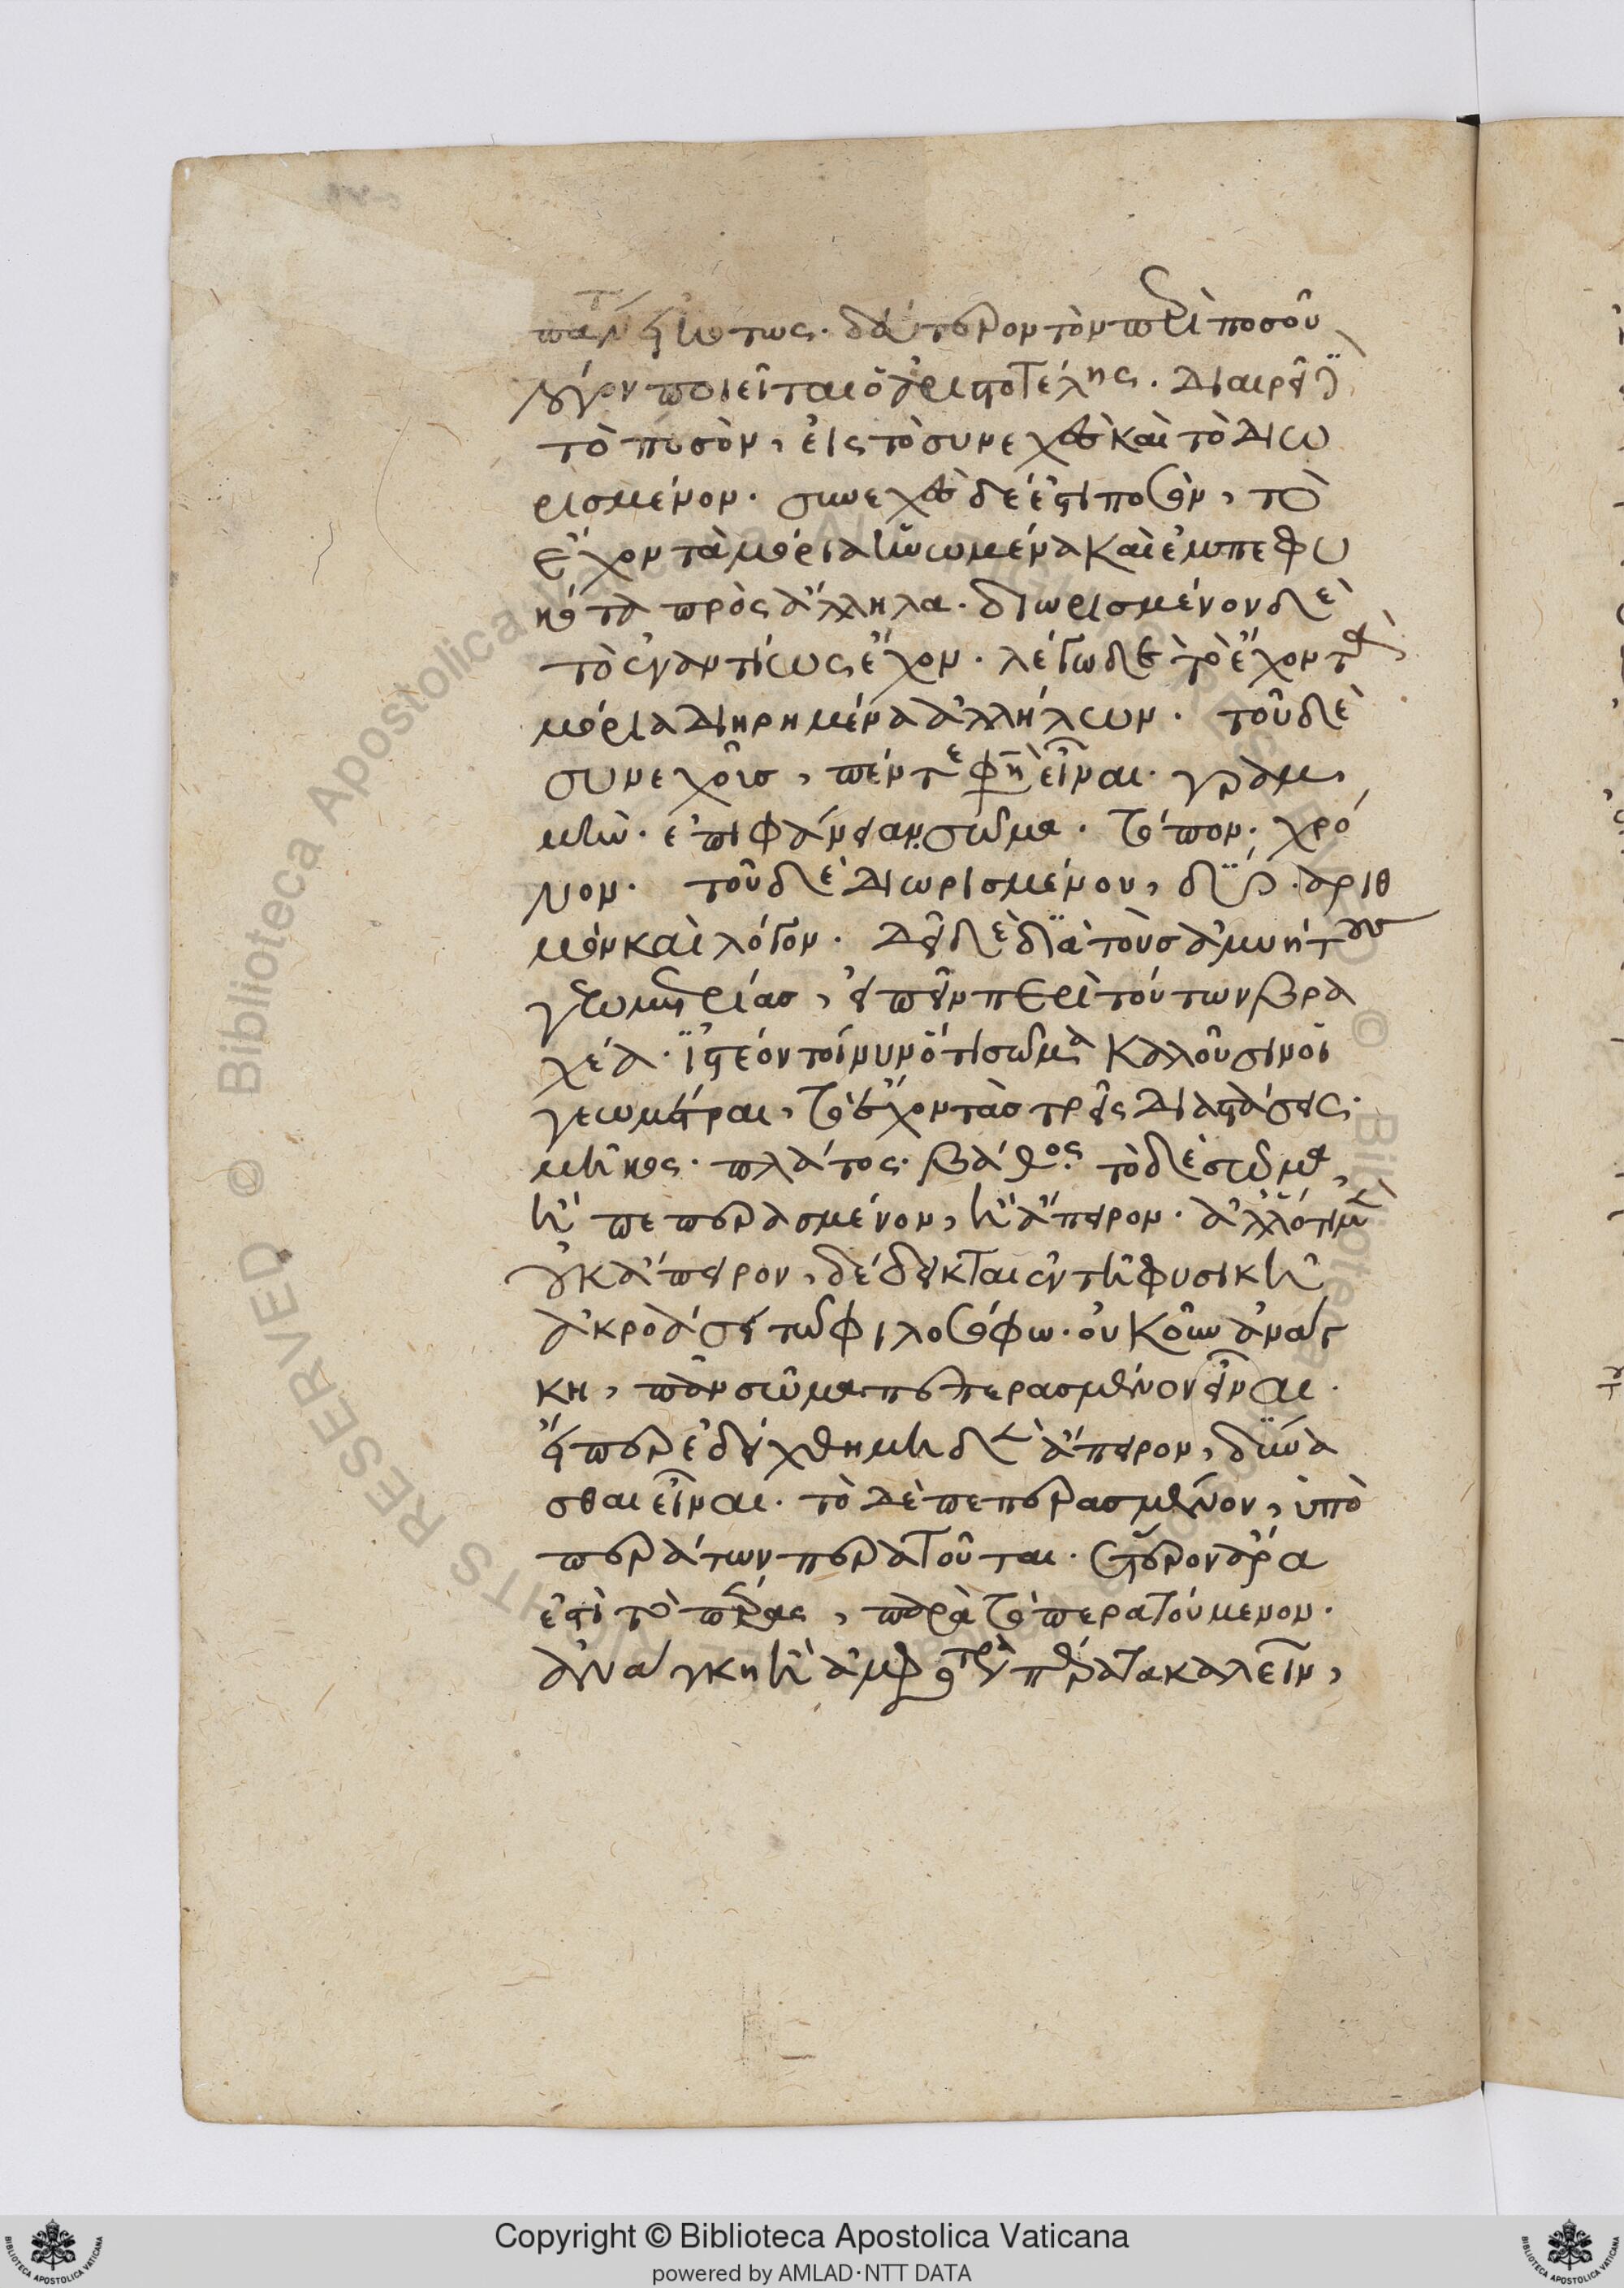 δεύτερον τὸν περὶ ποσοῦ
λόγον ποιεῖται ὁ ἀριστοτέλης. διαιρεῖ
τὸ ποσὸν, εἰς τὸ συνεχὲς καὶ τὸ διω
ρισμένον. συνεχὲς δέ ἐστι ποσὸν, τὸ
ἔχον τὰ μόρια ἡνωμένα καὶ ἐμπεφυ
κότα πρὸς ἄλληλα. διωρισμένον δὲ
τὸ ἐναντίως ἔχον. λέγω δὲ τὸ ἔχον τὰ
μόρια διῃρημένα ἀλλήλων. τοῦ δὲ
συνεχοῦς, πέντε φησὶ εἶναι. γραμ
μὴν. ἐπιφάνειαν. σῶμα. τόπον. χρό
νον. τοῦ δὲ διωρισμένου, δύο. ἀριθ
μὸν καὶ λόγον. δεῖ δὲ διὰ τοὺς ἀμυήτους
γεωμετρίας, εἰπεῖν περὶ τούτων βρα
χέα. ἰστέον τοίνυν ὅτι σῶμα καλοῦσιν οἱ
γεωμέτραι, τὸ ἔχον τὰς τρεῖς διαστάσεις.
μῆκος. πλάτος. βάθος. τὸ δὲ σῶμα,
ἢ πεπερασμένον, ἢ ἄπειρον. ἀλλ' ὅτι μὲν
οὐκ ἄπειρον, δέδεικται ἐν τῇ φυσικῇ
ἀκροάσει τῷ φιλοσόφῳ. οὐκοῦν ἀνάγ
κη, πᾶν σῶμα πεπερασμένον εἶναι.
εἴπερ ἐδείχθη μηδὲν ἄπειρον, δύνα
σθαι εἶναι. τὸ δὲ πεπερασμένον, ὑπὸ
περάτων περατοῦται. ἕτερον ἄρα
ἐστὶ τὸ πέρας, παρὰ τὸ περατούμενον.
ἀνάγκη ἢ ἀμφότερα πέρατα καλεῖν,
Copyright © Biblioteca Apostolica Vaticana
powered by AMLAD·NTT DATA